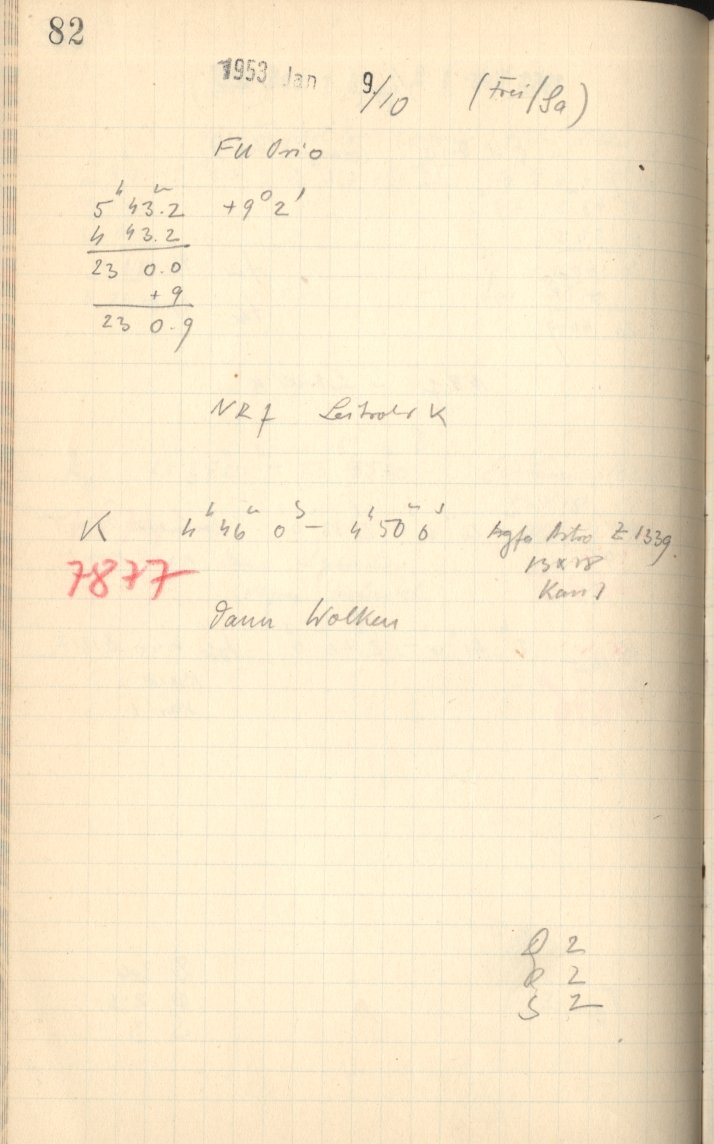 82
1953 Jan 9./10 (Frei/Sa)
FU Orio
5ʰ 43ᵐ.2 +9° 2'
4 43.2
23 0.0
+9
23 0.9
NRf Leitrohr K
K 4ʰ 46ᵐ 0ˢ – 4ʰ 50ᵐ 0ˢ Agfa Astro Z 1339
13x18
7877
Kass
Dann Wolken
2
2
S 2